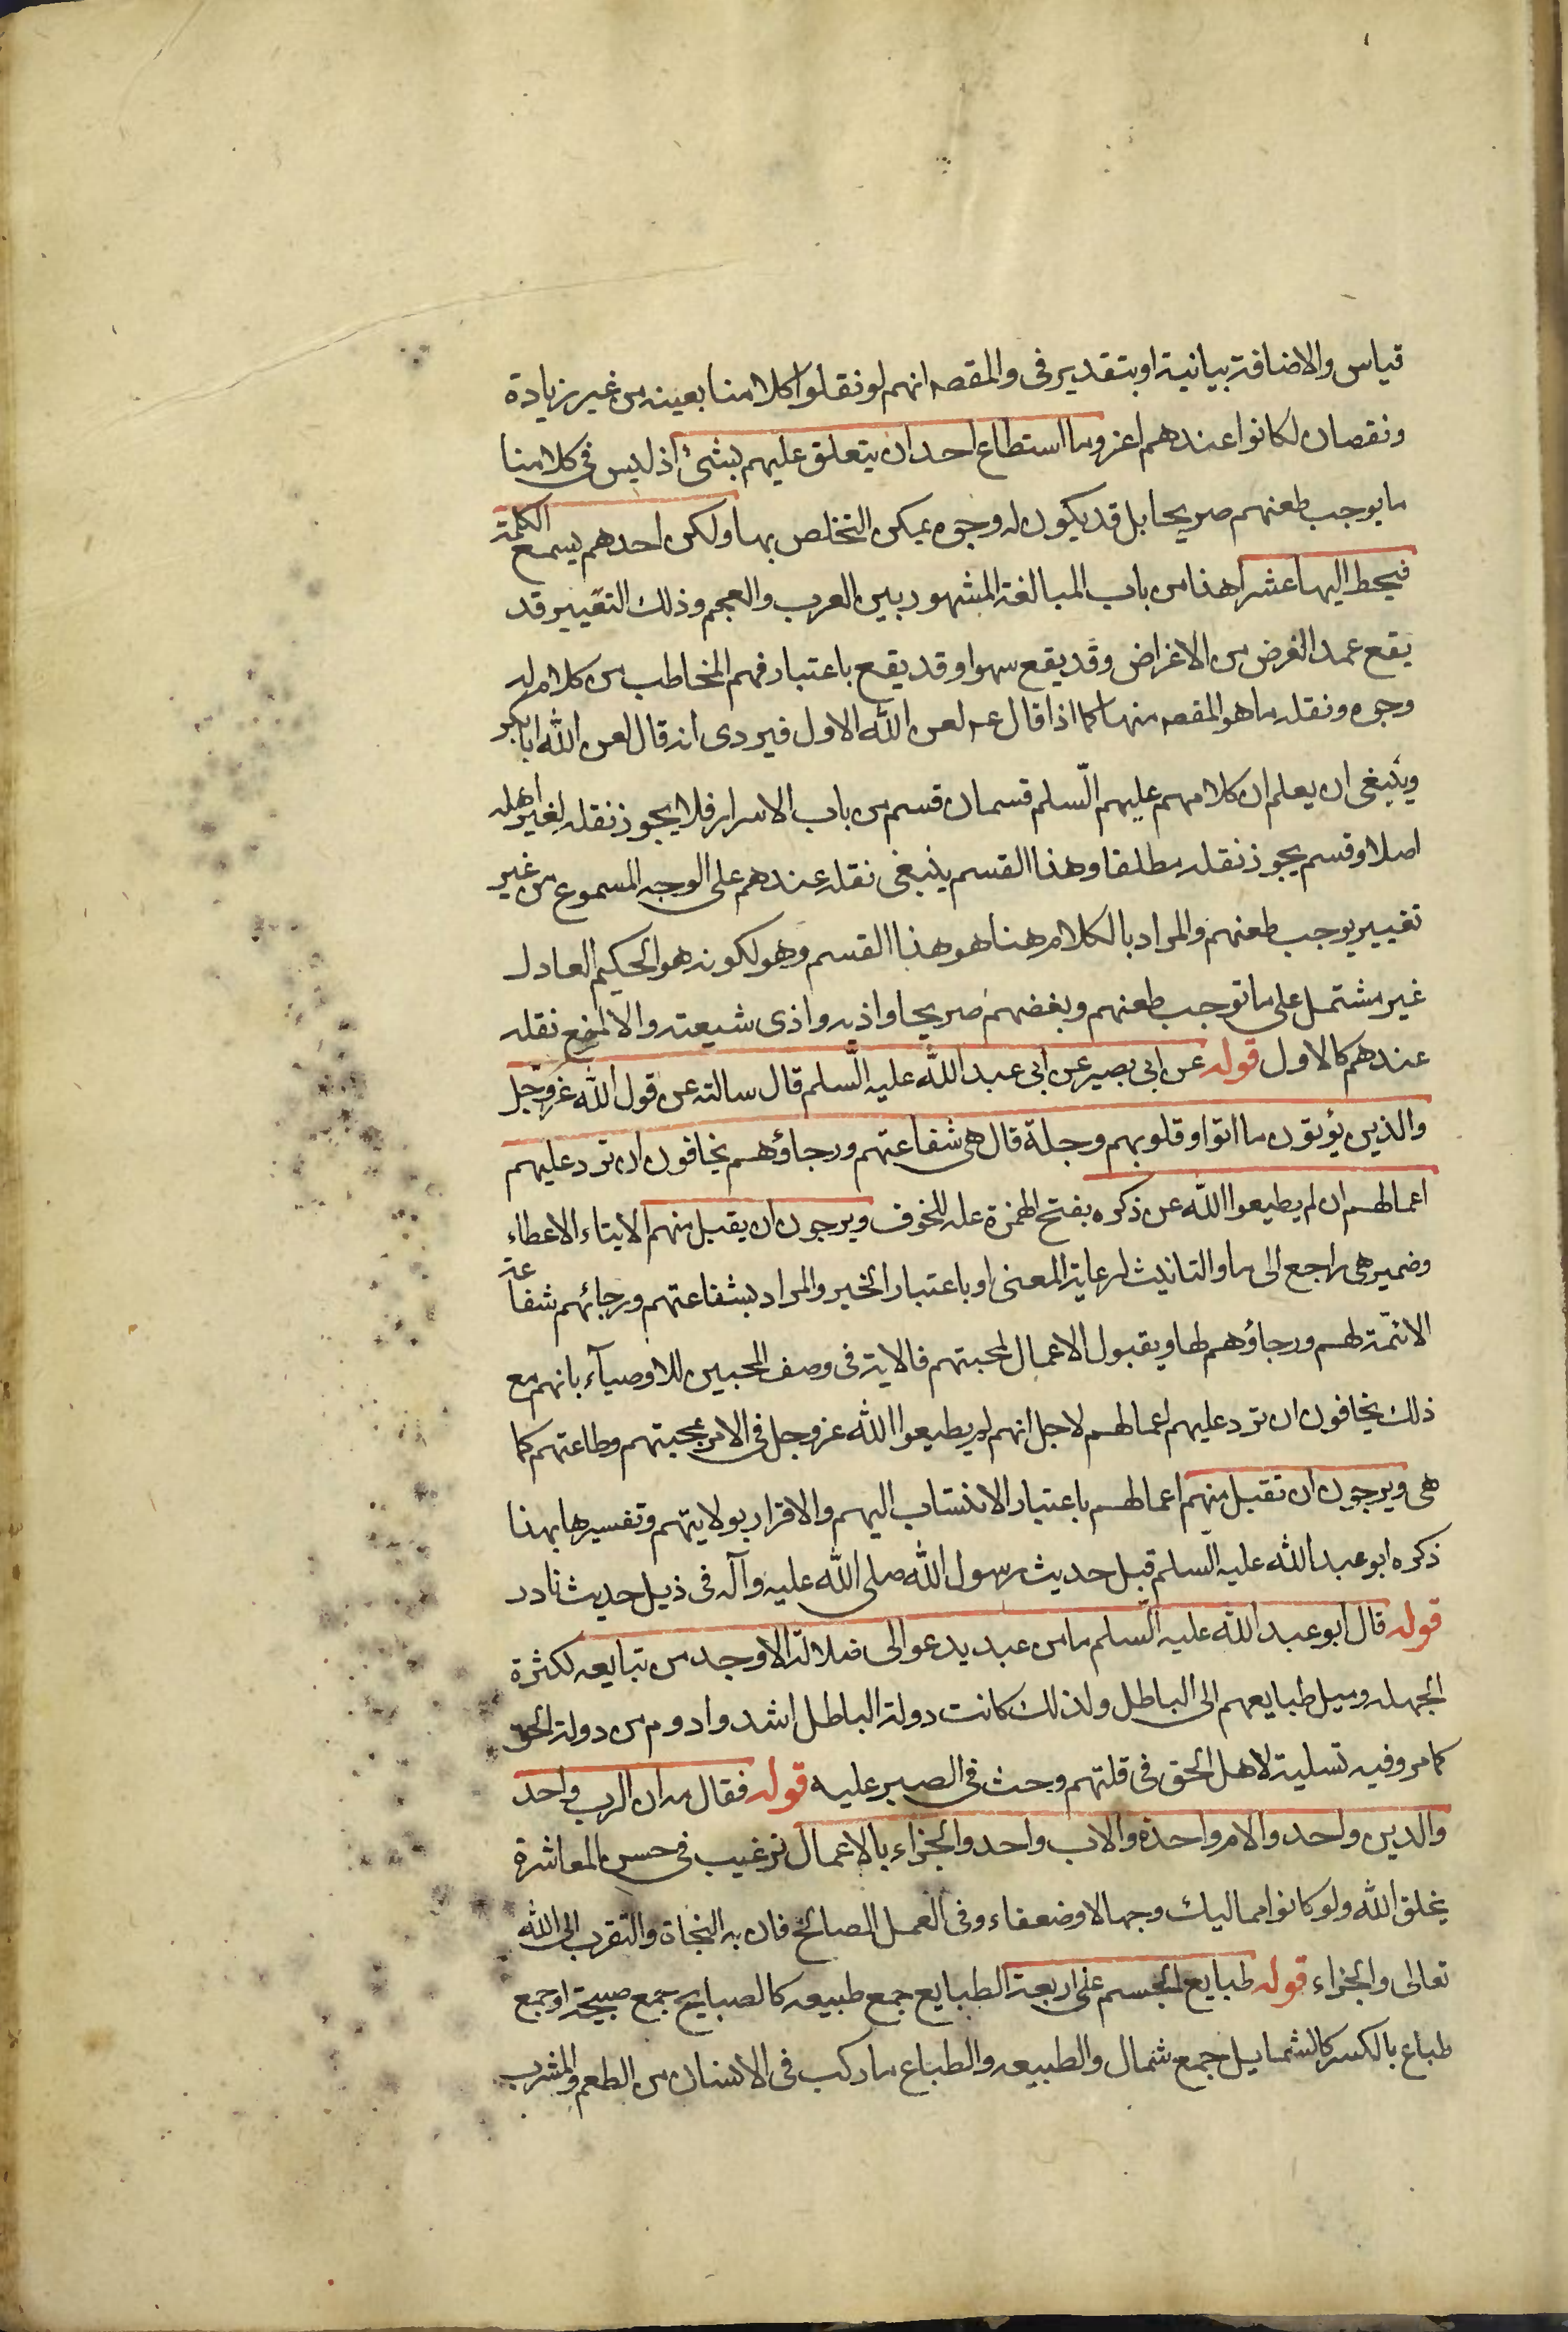 قياس والاضافة بيانية او بتقدير فى والمقصه انهم لو نقلوا كلامنا بعينه من غير زيادة
ونقصان لكانوا عندهم اعز وما استطاع احد ان يتعلق عليهم بشئ اذ ليس فى كلامنا
ما يوجب طعنهم صريحا بل قد يكون له وجوه يمكن التخلص بها ولكن احدهم يسمع الكلمة
فيحط اليها عشرا هذا من باب المبالغة المشهور بين العرب والعجم وذلك التغيير قد
يقع عمدا لغرض من الاغراض وقد يقع سهوا وقد يقع باعتبار فهم المخاطب من كلام له
وجوه ونقله ما هو المقصه منها كما اذا قال عه لعن الله الاول فيروى انه قال لعن الله ابابكر
وينبغى ان يعلم ان كلامهم عليهم السلم قسمان قسم من باب الاسرار فلا يجوز نقله لغير اهله
اصلا وقسم يجوز نقله مطلقا وهذا القسم ينبغى نقله عندهم على الوجه المسموع من غير
تغيير يوجب طعنهم والمراد بالكلام هنا هو هذا القسم وهو لكونه هو الحكيم العادل
غير مشتمل على ما توجب طعنهم وبغضهم صريحا واذيه واذى شيعته والا لمنع نقله
عندهم كالاول قوله عن ابى بصير عن ابى عبد الله عليه السلم قال سالته عن قول الله عز وجل
والذين يؤتون ما اتوا وقلوبهم وجلة قال هى شفاعتهم ورجاؤهم يخافون ان ترد عليهم
اعمالهم ان لم يطيعوا الله عن ذكره بفتح الهمزة علة للخوف ويرجون ان يقبل منهم الايتاء الاعطاء
وضمير هى راجع الى ما والتانيث لرعاية المعنى او باعتبار الخبر والمراد بشفاعتهم ورجائهم شفاعة
الائمّة لهم ورجاؤهم لها ويقبول الاعمال لمحبتهم فالاية فى وصف المحبين للاوصيآء بانهم مع
ذلك يخافون ان ترد عليهم اعمالهم لاجل انهم لم يطيعوا الله عز وجل فى الامر بمحبتهم وطاعتهم كما
هى ويرجون ان تقبل منهم اعمالهم باعتبار الانتساب اليهم والاقرار بولايتهم وتفسيرها بهذا
ذكره ابو عبد الله عليه السلم قبل حديث رسول الله صلى الله عليه وآله فى ذيل حديث نادر
قوله قال ابو عبد الله عليه السلم ما من عبد يدعو الى ضلالة الا وجد من تبايعه لكثرة
الجهله وميل طبايعهم الى الباطل ولذلك كانت دولة الباطل اشد وادوم من دولة الحق
كما مر وفيه تسلية لاهل الحق فى قلتهم وحث فى الصبر عليه قوله فقال مه ان الرب واحد
والدين واحد والام واحدة والاب واحد والجزاء بالاعمال ترغيب فى حسن المعاشرة
بخلق الله ولو كانوا مماليك وجهالا وضعفاء وفى العمل الصالح فان به النجاة والتقرب الى الله
تعالى والجزاء قوله طبايع الجسم على اربعة الطبايع جمع طبيعه كالصبايح جمع صبيحة او جمع
طباع بالكسر كالشمايل جمع شمال والطبيعه والطباع ما ركب فى الانسان من الطعم والمشرب